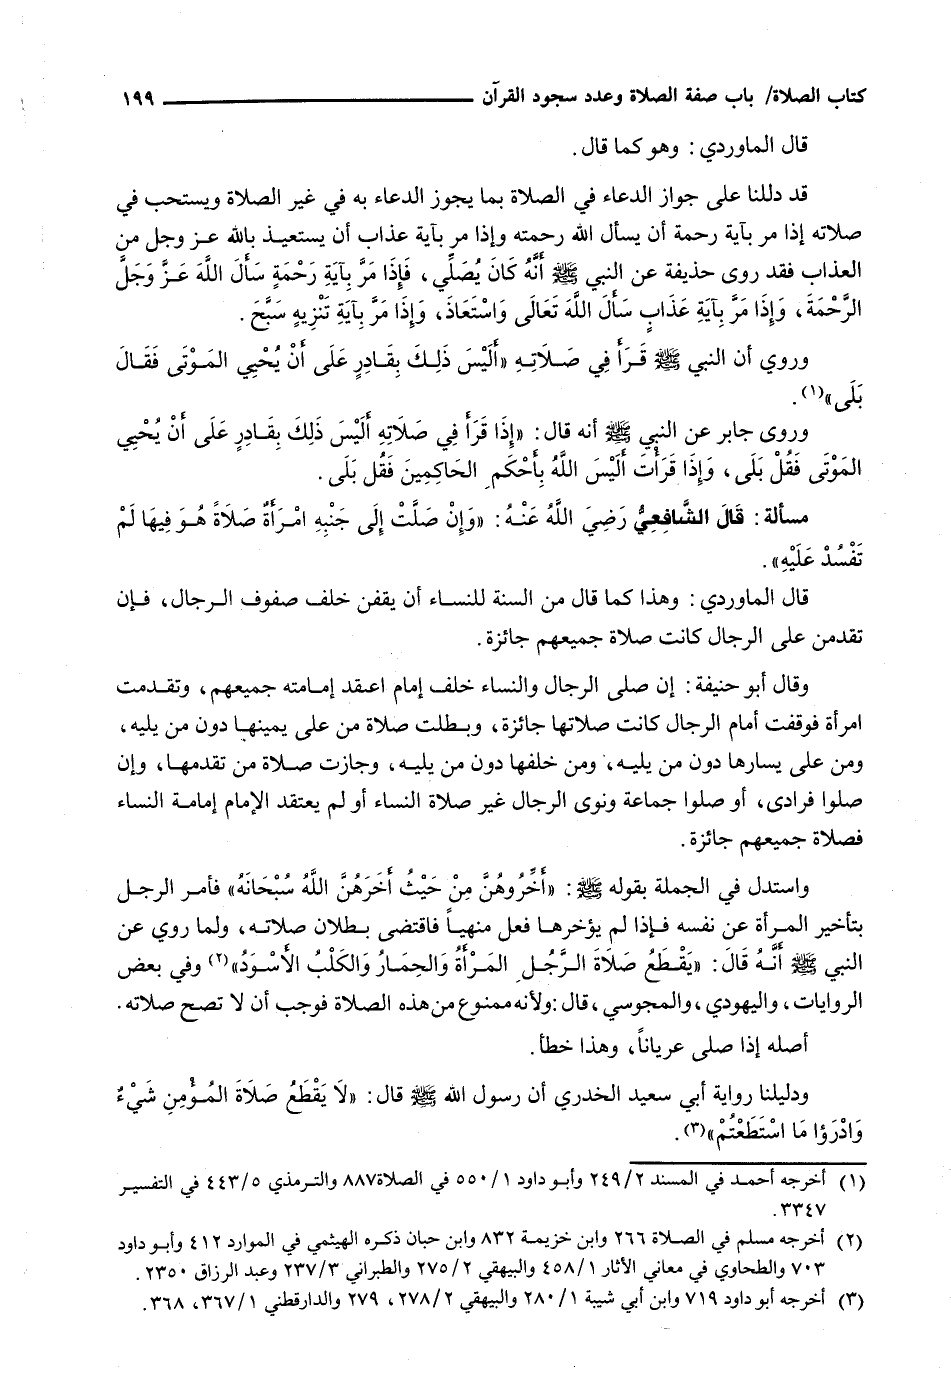 كتاب الصلاة/ باب صفة الصلاة وعدد سجود القرآن ـــــــــــــــــــــــــــــــــ ١٩٩
قال الماوردي: وهو كما قال.
قد دللنا على جواز الدعاء في الصلاة بما يجوز الدعاء به في غير الصلاة ويستحب في
صلاته إذا مر بآية رحمة أن يسأل الله رحمته وإذا مر بآية عذاب أن يستعيذ بالله عز وجل من
العذاب فقد روى حذيفة عن النبي ﷺ أَنَّهُ كَانَ يُصَلِّي، فَإِذَا مَرَّ بِآيَةِ رَحْمَةٍ سَأَلَ اللَّهَ عَزَّ وَجَلَّ
الرَّحْمَةَ، وَإِذَا مَرَّ بِآيَةِ عَذَابٍ سَأَلَ اللَّهَ تَعَالَى وَاسْتَعَاذَ، وَإِذَا مَرَّ بِآيَةِ تَنْزِيهٍ سَبَّحَ.
وروي أن النبي ﷺ قَرَأَ فِي صَلَاتِهِ «أَلَيْسَ ذَلِكَ بِقَادِرٍ عَلَى أَنْ يُحْيِي المَوْتَى فَقَالَ
بَلَى»(١).
وروى جابر عن النبي ﷺ أنه قال: «إِذَا قَرَأَ فِي صَلَاتِهِ أَلَيْسَ ذَلِكَ بِقَادِرٍ عَلَى أَنْ يُحْيِي
المَوْتَى فَقُلْ بَلَى، وَإِذَا قَرَأْتَ أَلَيْسَ اللَّهُ بِأَحْكَمِ الحَاكِمِينَ فَقُل بَلَى.
مسألة: قَالَ الشَّافِعِيُّ رَضِيَ اللَّهُ عَنْهُ: «وَإِنْ صَلَّتْ إِلَى جَنْبِهِ امْرَأَةٌ صَلَاةً هُوَ فِيهَا لَمْ
تَفْسُدْ عَلَيْهِ».
قال الماوردي: وهذا كما قال من السنة للنساء أن يقفن خلف صفوف الرجال، فإن
تقدمن على الرجال كانت صلاة جميعهم جائزة.
وقال أبو حنيفة: إن صلى الرجال والنساء خلف إمام اعقد إمامته جميعهم، وتقدمت
امرأة فوقفت أمام الرجال كانت صلاتها جائزة، وبطلت صلاة من على يمينها دون من يليه،
ومن على يسارها دون من يليه، ومن خلفها دون من يليه، وجازت صلاة من تقدمها، وإن
صلوا فرادى، أو صلوا جماعة ونوى الرجال غير صلاة النساء أو لم يعتقد الإمام إمامة النساء
فصلاة جميعهم جائزة.
واستدل في الجملة بقوله ﷺ: «أَخِّرُوهُنَّ مِنْ حَيْثُ أَخَرَهُنَّ اللَّهُ سُبْحَانَهُ» فأمر الرجل
بتأخير المرأة عن نفسه فإذا لم يؤخرها فعل منهياً فاقتضى بطلان صلاته، ولما روي عن
النبي ﷺ أَنَّهُ قَالَ: «يَقْطَعُ صَلَاةَ الرَّجُلِ المَرْأَةُ وَالحِمَارُ وَالكَلْبُ الأَسْوَدُ»(٢) وفي بعض
الروايات، واليهودي، والمجوسي، قال: ولأنه ممنوع من هذه الصلاة فوجب أن لا تصح صلاته.
أصله إذا صلى عرياناً، وهذا خطأ.
ودليلنا رواية أبي سعيد الخدري أن رسول الله ﷺ قال: «لَا يَقْطَعُ صَلَاةَ المُؤْمِنِ شَيْءٌ
وَادْرَؤا مَا اسْتَطَعْتُمْ»(٣).
(١) أخرجه أحمد في المسند ٢/ ٢٤٩ وأبو داود ١/ ٥٥٠ في الصلاة ٨٨٧ والترمذي ٥/ ٤٤٣ في التفسير
٣٣٤٧.
(٢) أخرجه مسلم في الصلاة ٢٦٦ وابن خزيمة ٨٣٢ وابن حبان ذكره الهيثمي في الموارد ٤١٢ وأبو داود
٧٠٣ والطحاوي في معاني الأثار ١/ ٤٥٨ والبيهقي ٢/ ٢٧٥ والطبراني ٣/ ٢٣٧ وعبد الرزاق ٢٣٥٠.
(٣) أخرجه أبو داود ٧١٩ وابن أبي شيبة ١/ ٢٨٠ والبيهقي ٢/ ٢٧٨، ٢٧٩ والدارقطني ١/ ٣٦٧، ٣٦٨.